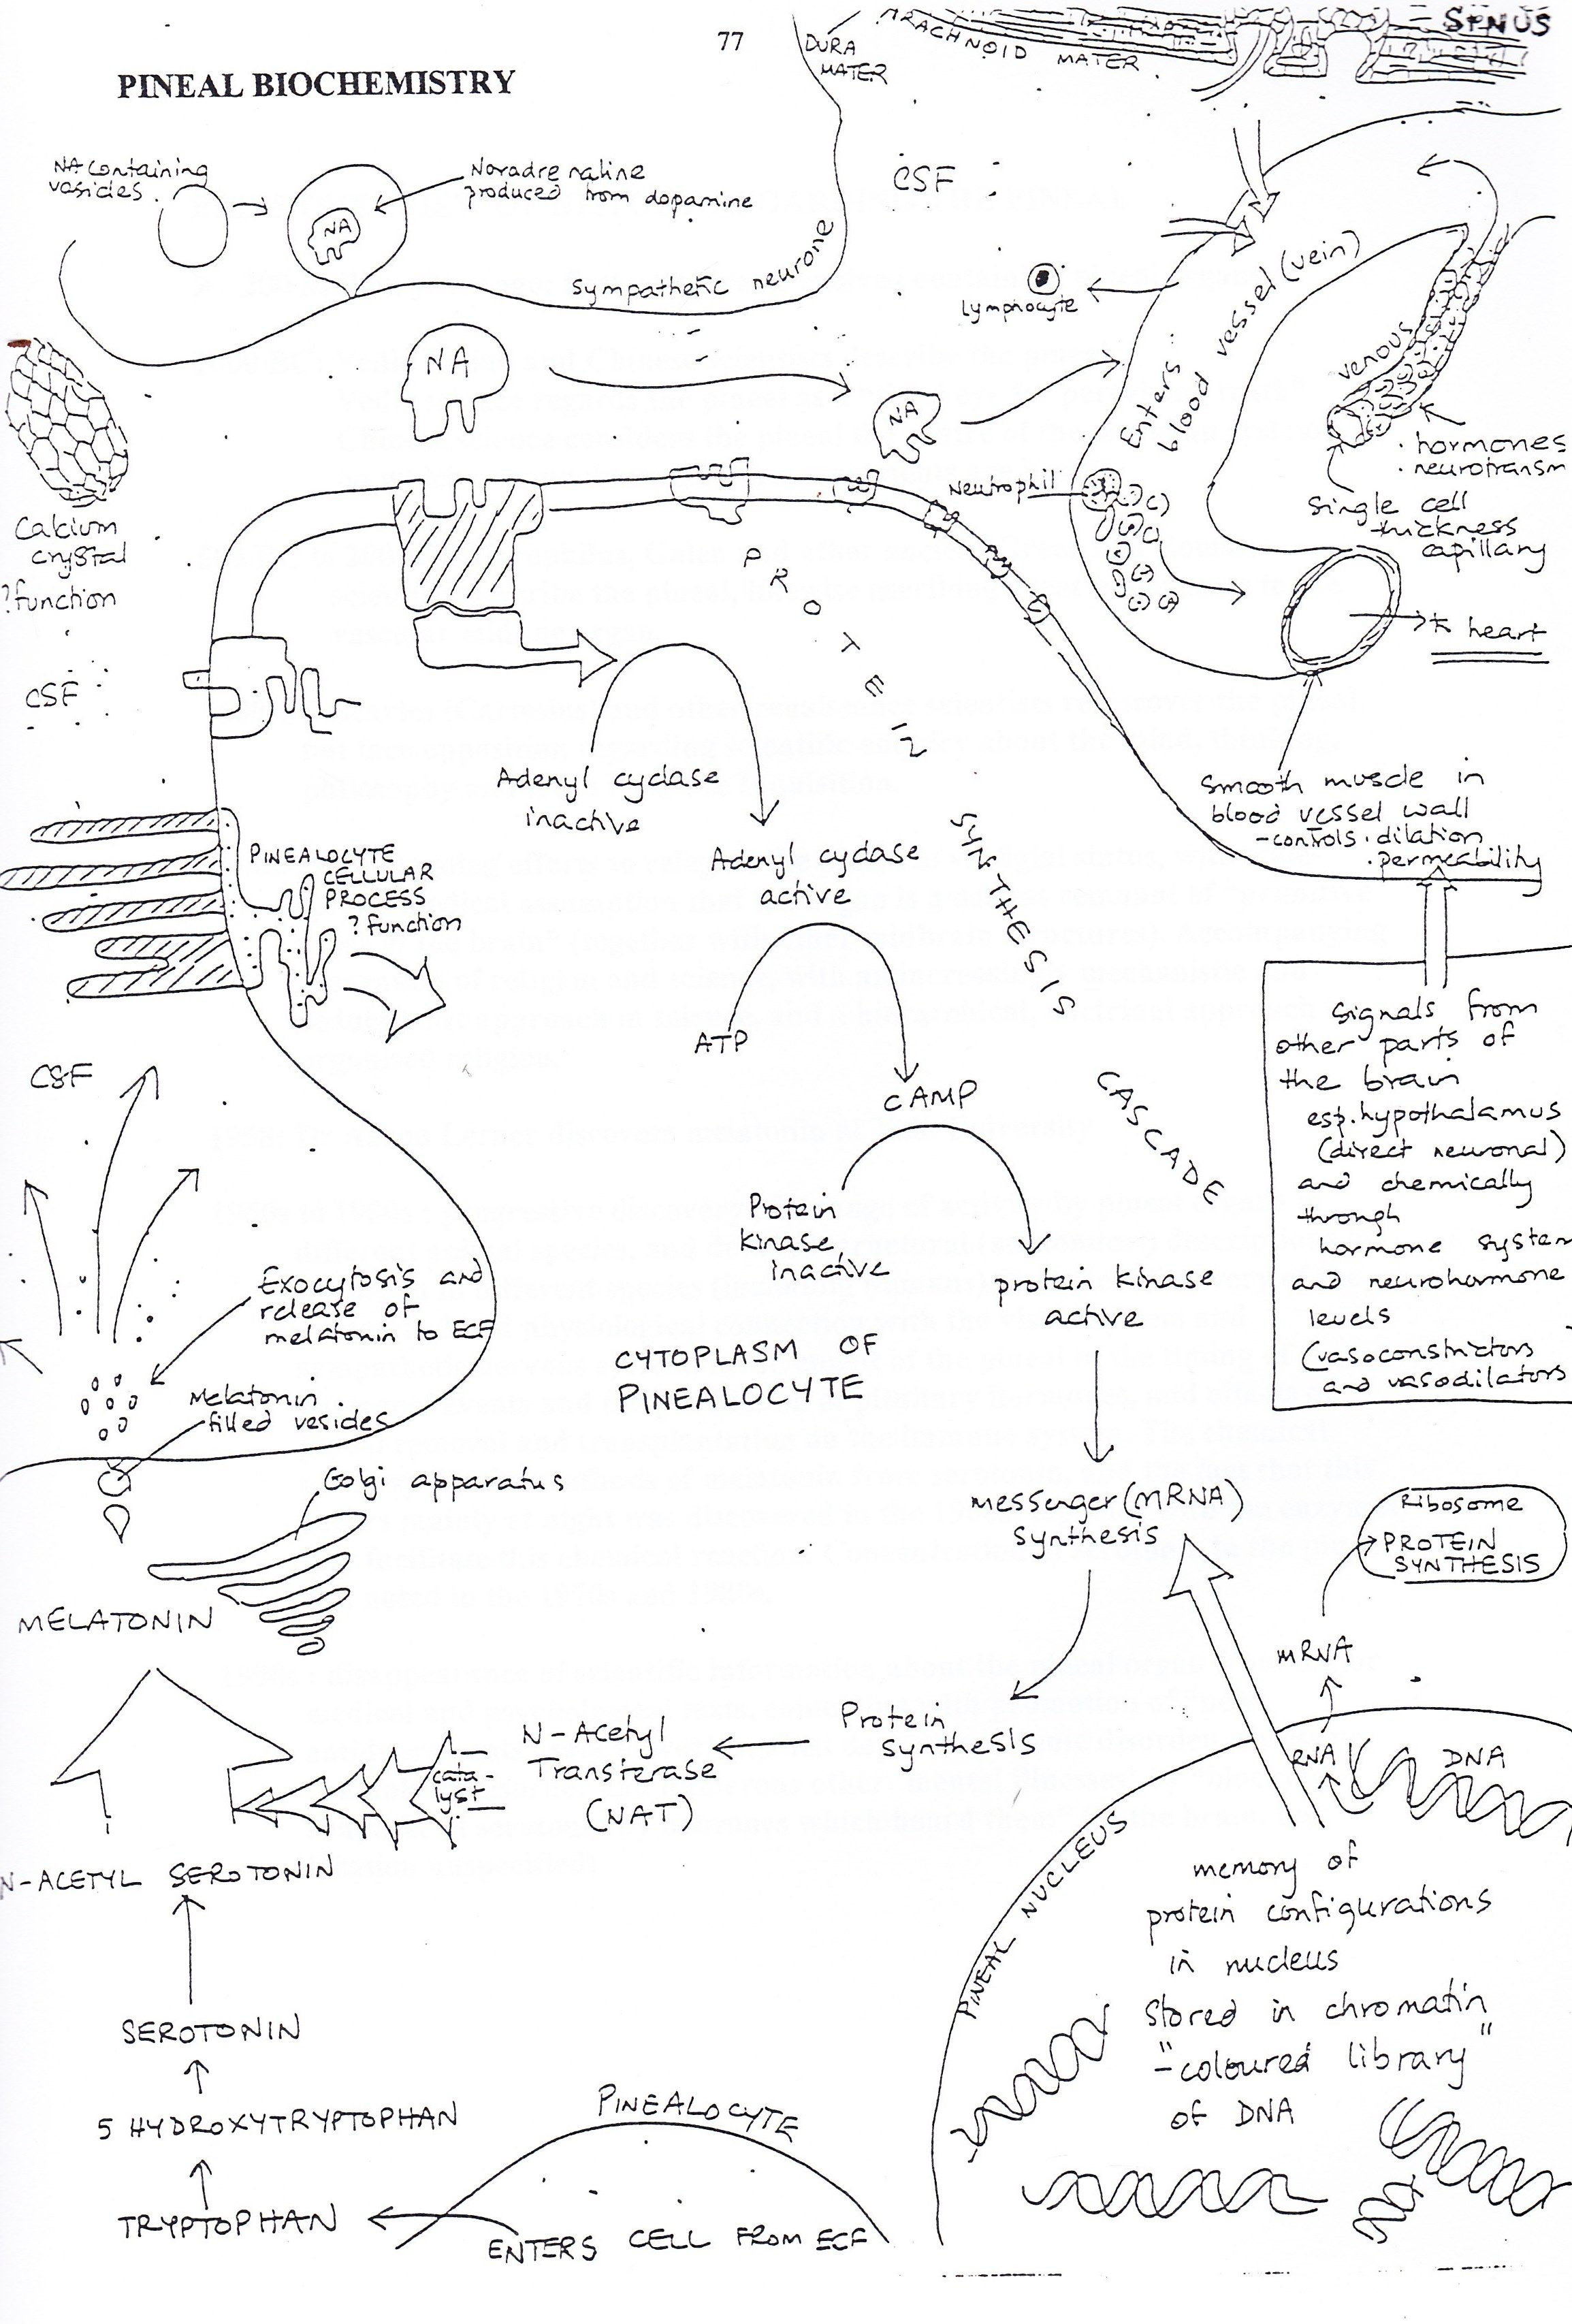 77
PINEAL BIOCHEMISTRY
DURA
MATER
ARACHNOID MATER
SINUS
NA containing
vesicles
Noradrenaline
produced from dopamine
NA
CSF
sympathetic neurone
lymphocyte
Enters
blood vessel (vein)
venous
NA
NA
. hormones
. neurotransm
Neutrophil
single cell
thickness
capillary
Calcium
crystal
?function
CSF
→ to heart
PROTEIN SYNTHESIS CASCADE
Adenyl cyclase
inactive
Smooth muscle in
blood vessel wall
-controls . dilation
. permeability
PINEALOCYTE
CELLULAR
PROCESS
? function
Adenyl cyclase
active
ATP
cAMP
CSF
signals from
other parts of
the brain
esp. hypothalamus
(direct neuronal)
and chemically
through
hormone system
and neurohormone
levels
(vasoconstrictors
and vasodilators
Protein
kinase,
inactive
protein kinase
active
Exocytosis and
release of
melatonin to ECF
CYTOPLASM OF
PINEALOCYTE
Melatonin
filled vesicles
Golgi apparatus
messenger (mRNA)
synthesis
Ribosome
PROTEIN
SYNTHESIS
MELATONIN
mRNA
N-Acetyl
Transterase
(NAT)
cata-
lyst
Protein
synthesis
RNA
DNA
N-ACETYL SEROTONIN
PINEAL NUCLEUS
memory of
protein configurations
in nucleus
stored in chromatin
-"coloured library"
of DNA
SEROTONIN
5 HYDROXYTRYPTOPHAN
PINEALOCYTE
TRYPTOPHAN
ENTERS CELL FROM ECF